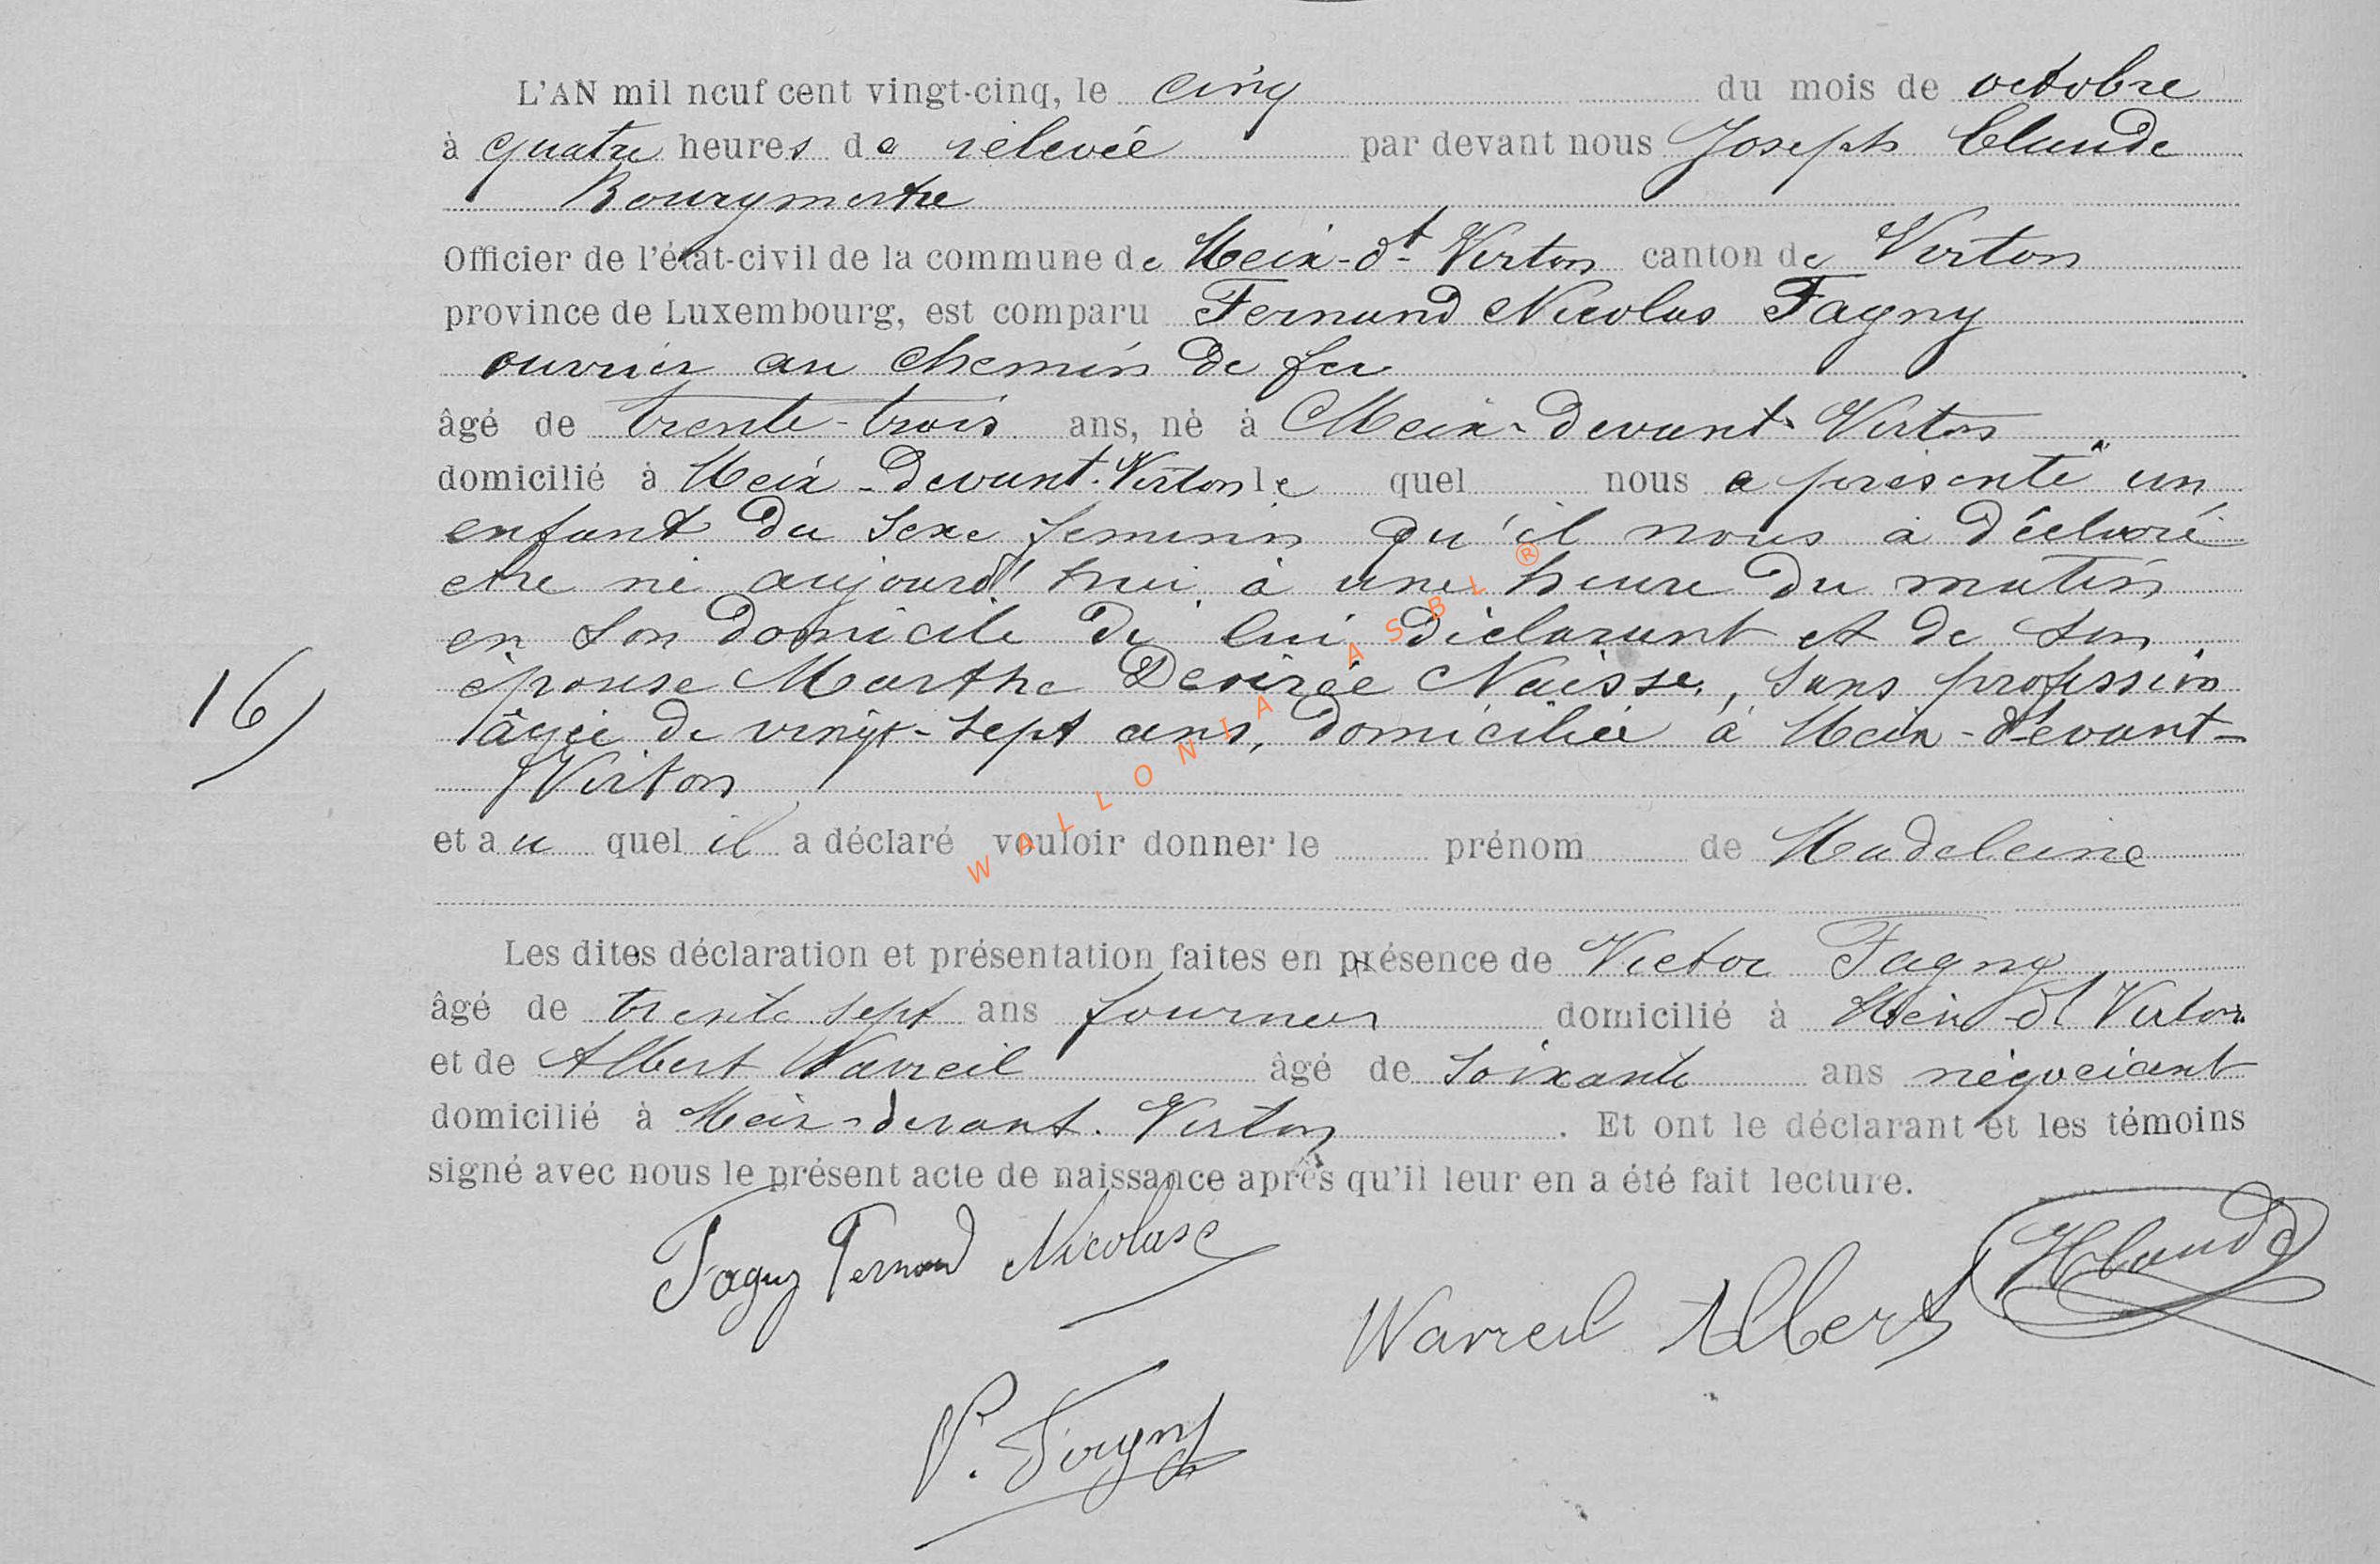 L'AN mil neuf cent vingt-cinq, le cinq du mois de octobre
à quatre heures de relevée par devant nous Joseph Claude
Bourgmestre
Officier de l'état-civil de la commune de Meix-dt-Virton canton de Virton
province de Luxembourg, est comparu Fernand Nicolas Fagny
ouvrier au chemin de fer
âgé de trente-trois ans, né à Meix-devant-Virton
domicilié à Meix-devant-Virton le quel nous a présenté un
enfant du sexe feminin qu'il nous a déclaré
etre né aujourd'hui à une heure du matin
en son domicile de lui déclarant et de son
épouse Marthe Desirée Naisse, sans profession
âgée de vingt-sept ans, domiciliée à Meix-devant-
16) Virton
et au quel il a déclaré vouloir donner le prénom de Madeleine
Les dites déclaration et présentation faites en présence de Victor Fagny
âgé de trente sept ans journalier domicilié à Meix-dt Virton
et de Albert Warreil âgé de soixante ans négociant
domicilié à Meix-devant-Virton. Et ont le déclarant et les témoins
signé avec nous le présent acte de naissance après qu'il leur en a été fait lecture.
Fagny Fernand Nicolas
Warreil Albert
V. Fagny
WALLONIA ASBL ®